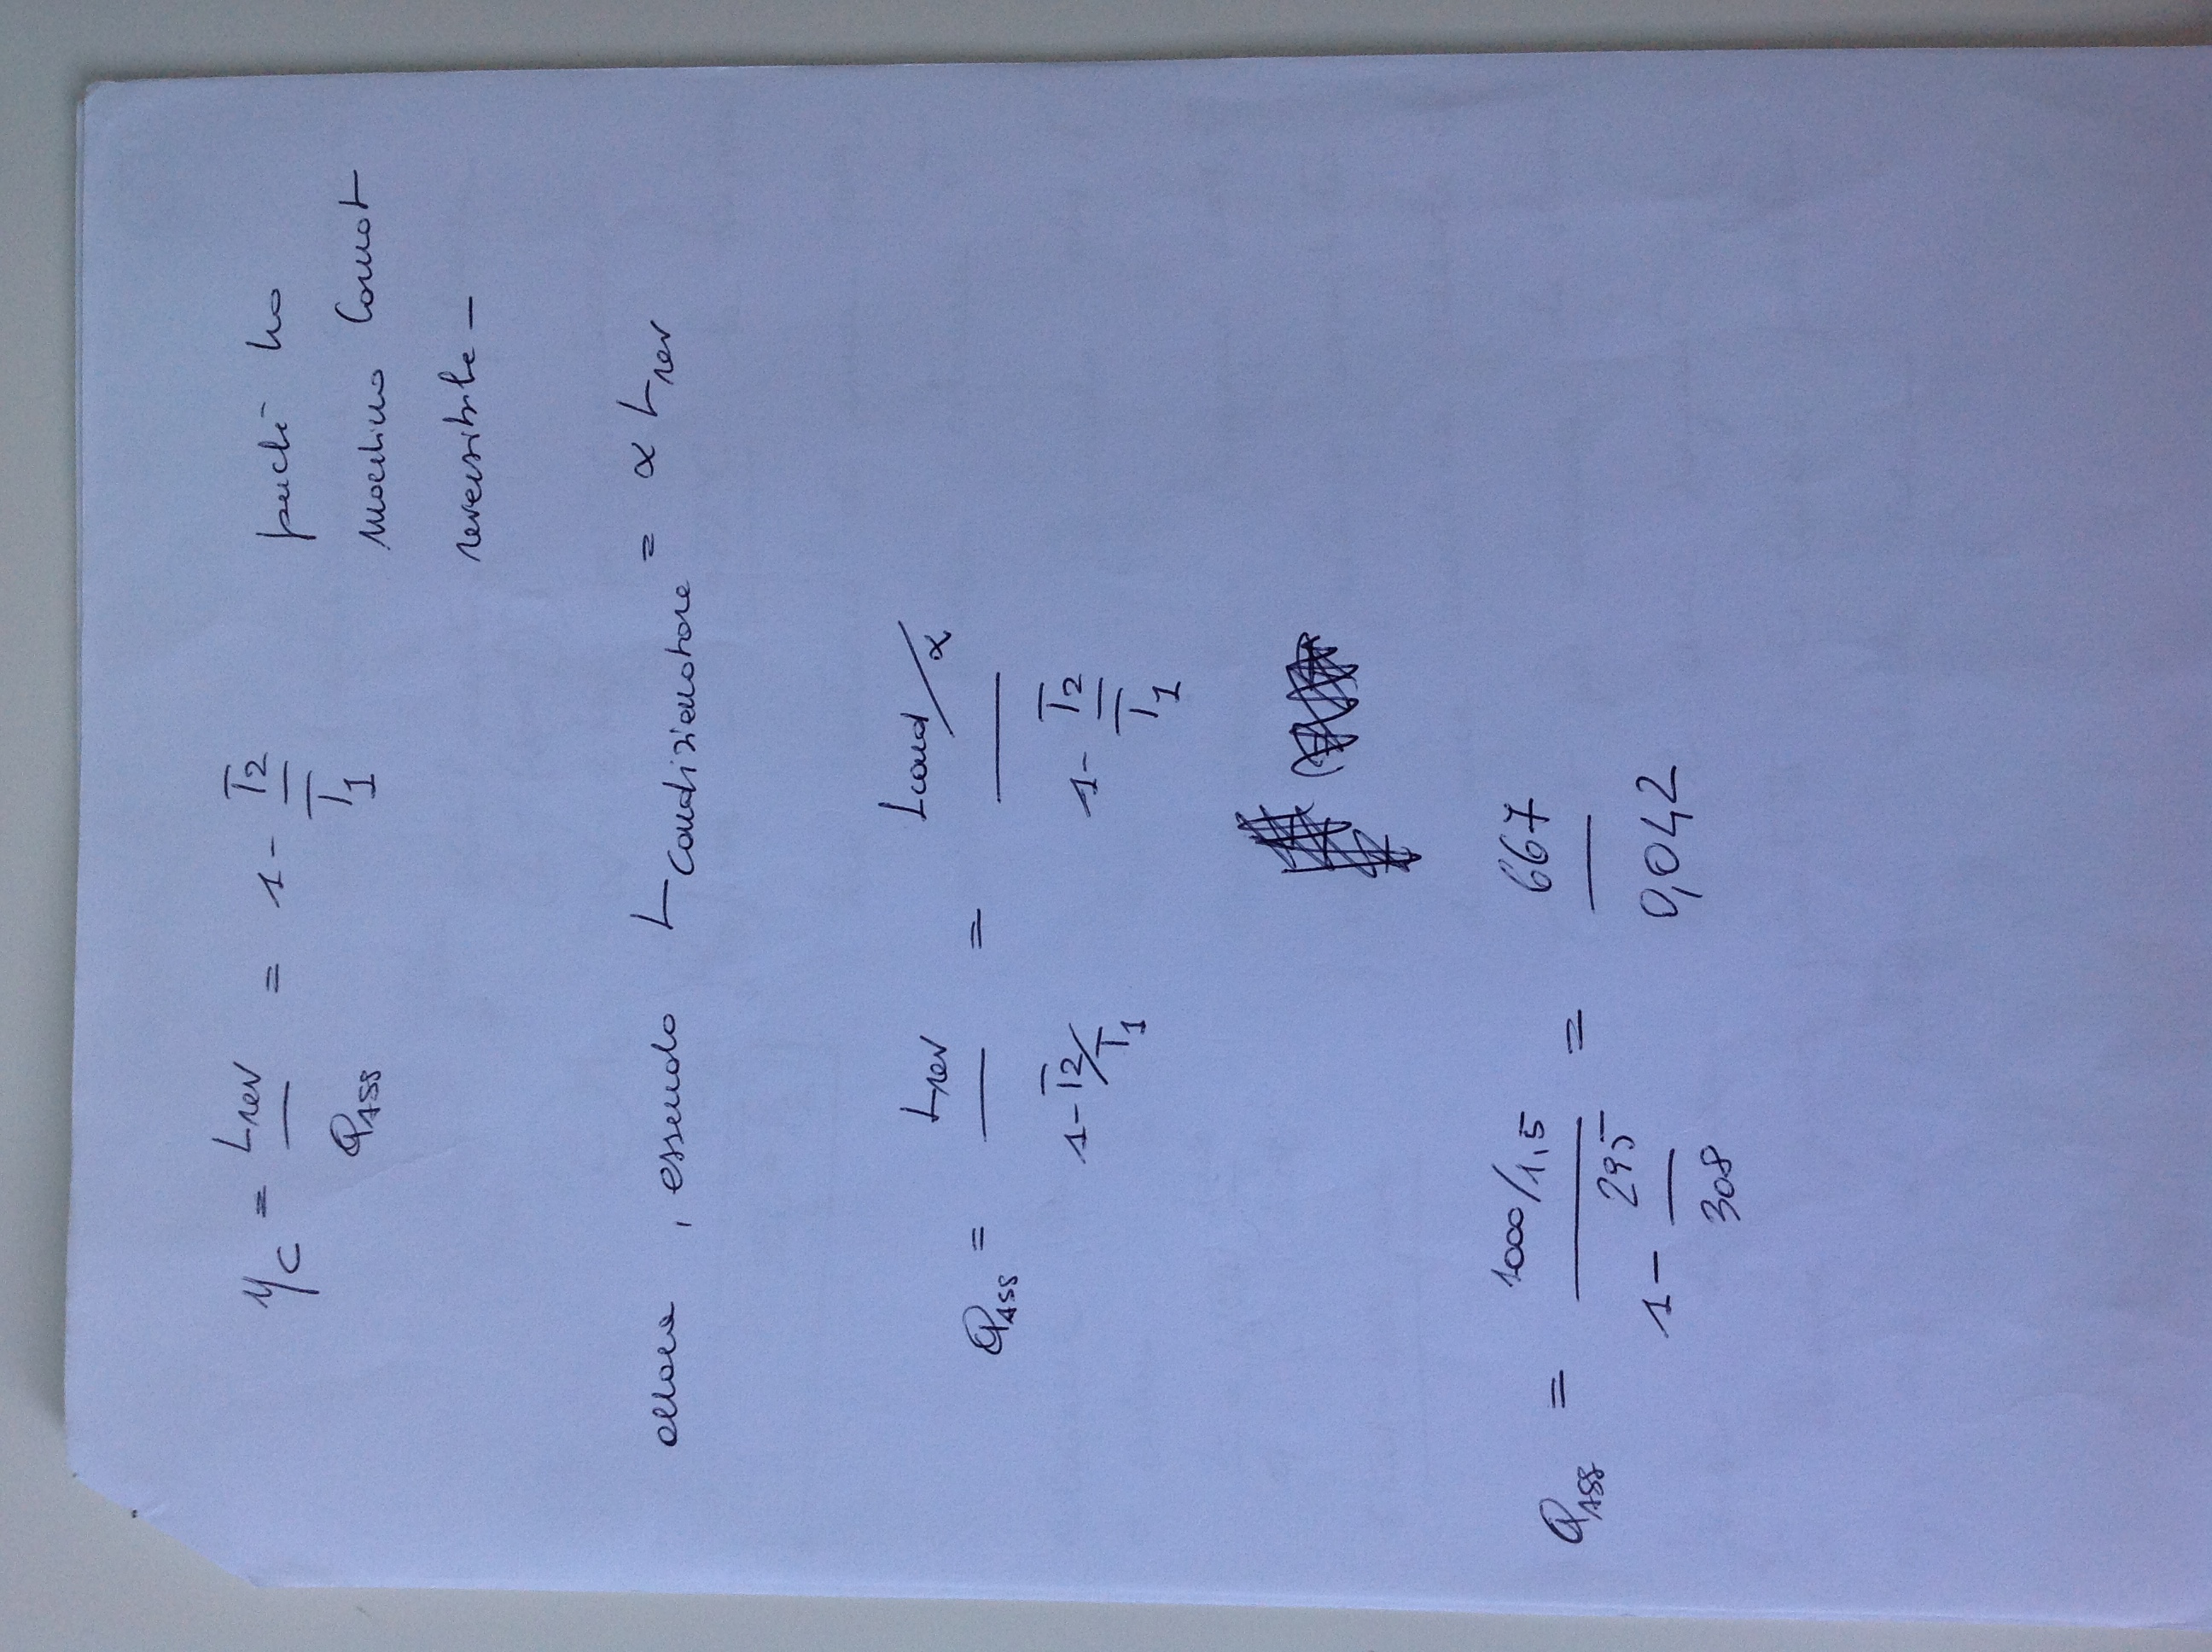 η_C = L_rev / Q_ASS = 1 - T2 / T1 perché ho
macchina Carnot
reversibile –
allora , essendo L_condizionatore = α L_rev
Q_ASS = L_rev / (1 - T2/T1) = (L_cond/α) / (1 - T2/T1)
Q_ASS = (1000/1,5) / (1 - 295/308) = 667 / 0,042